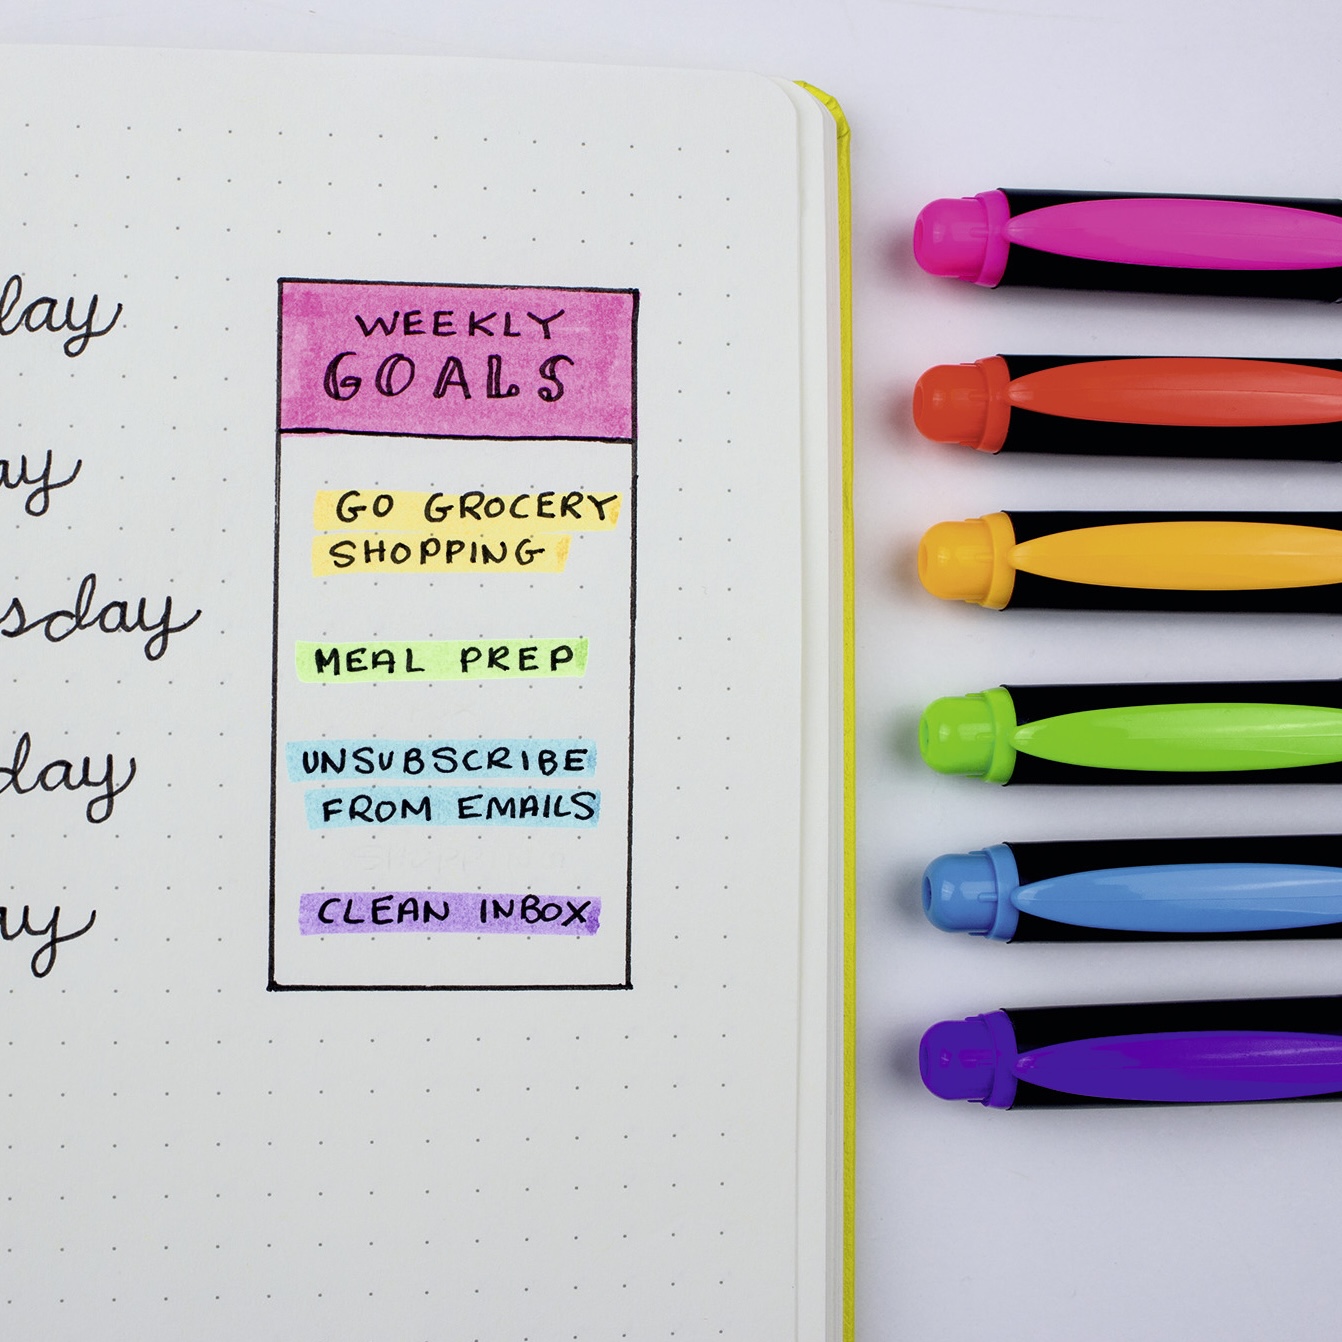 day
ay
sday
day
ay
WEEKLY
GOALS
GO GROCERY
SHOPPING
MEAL PREP
UNSUBSCRIBE
FROM EMAILS
CLEAN INBOX